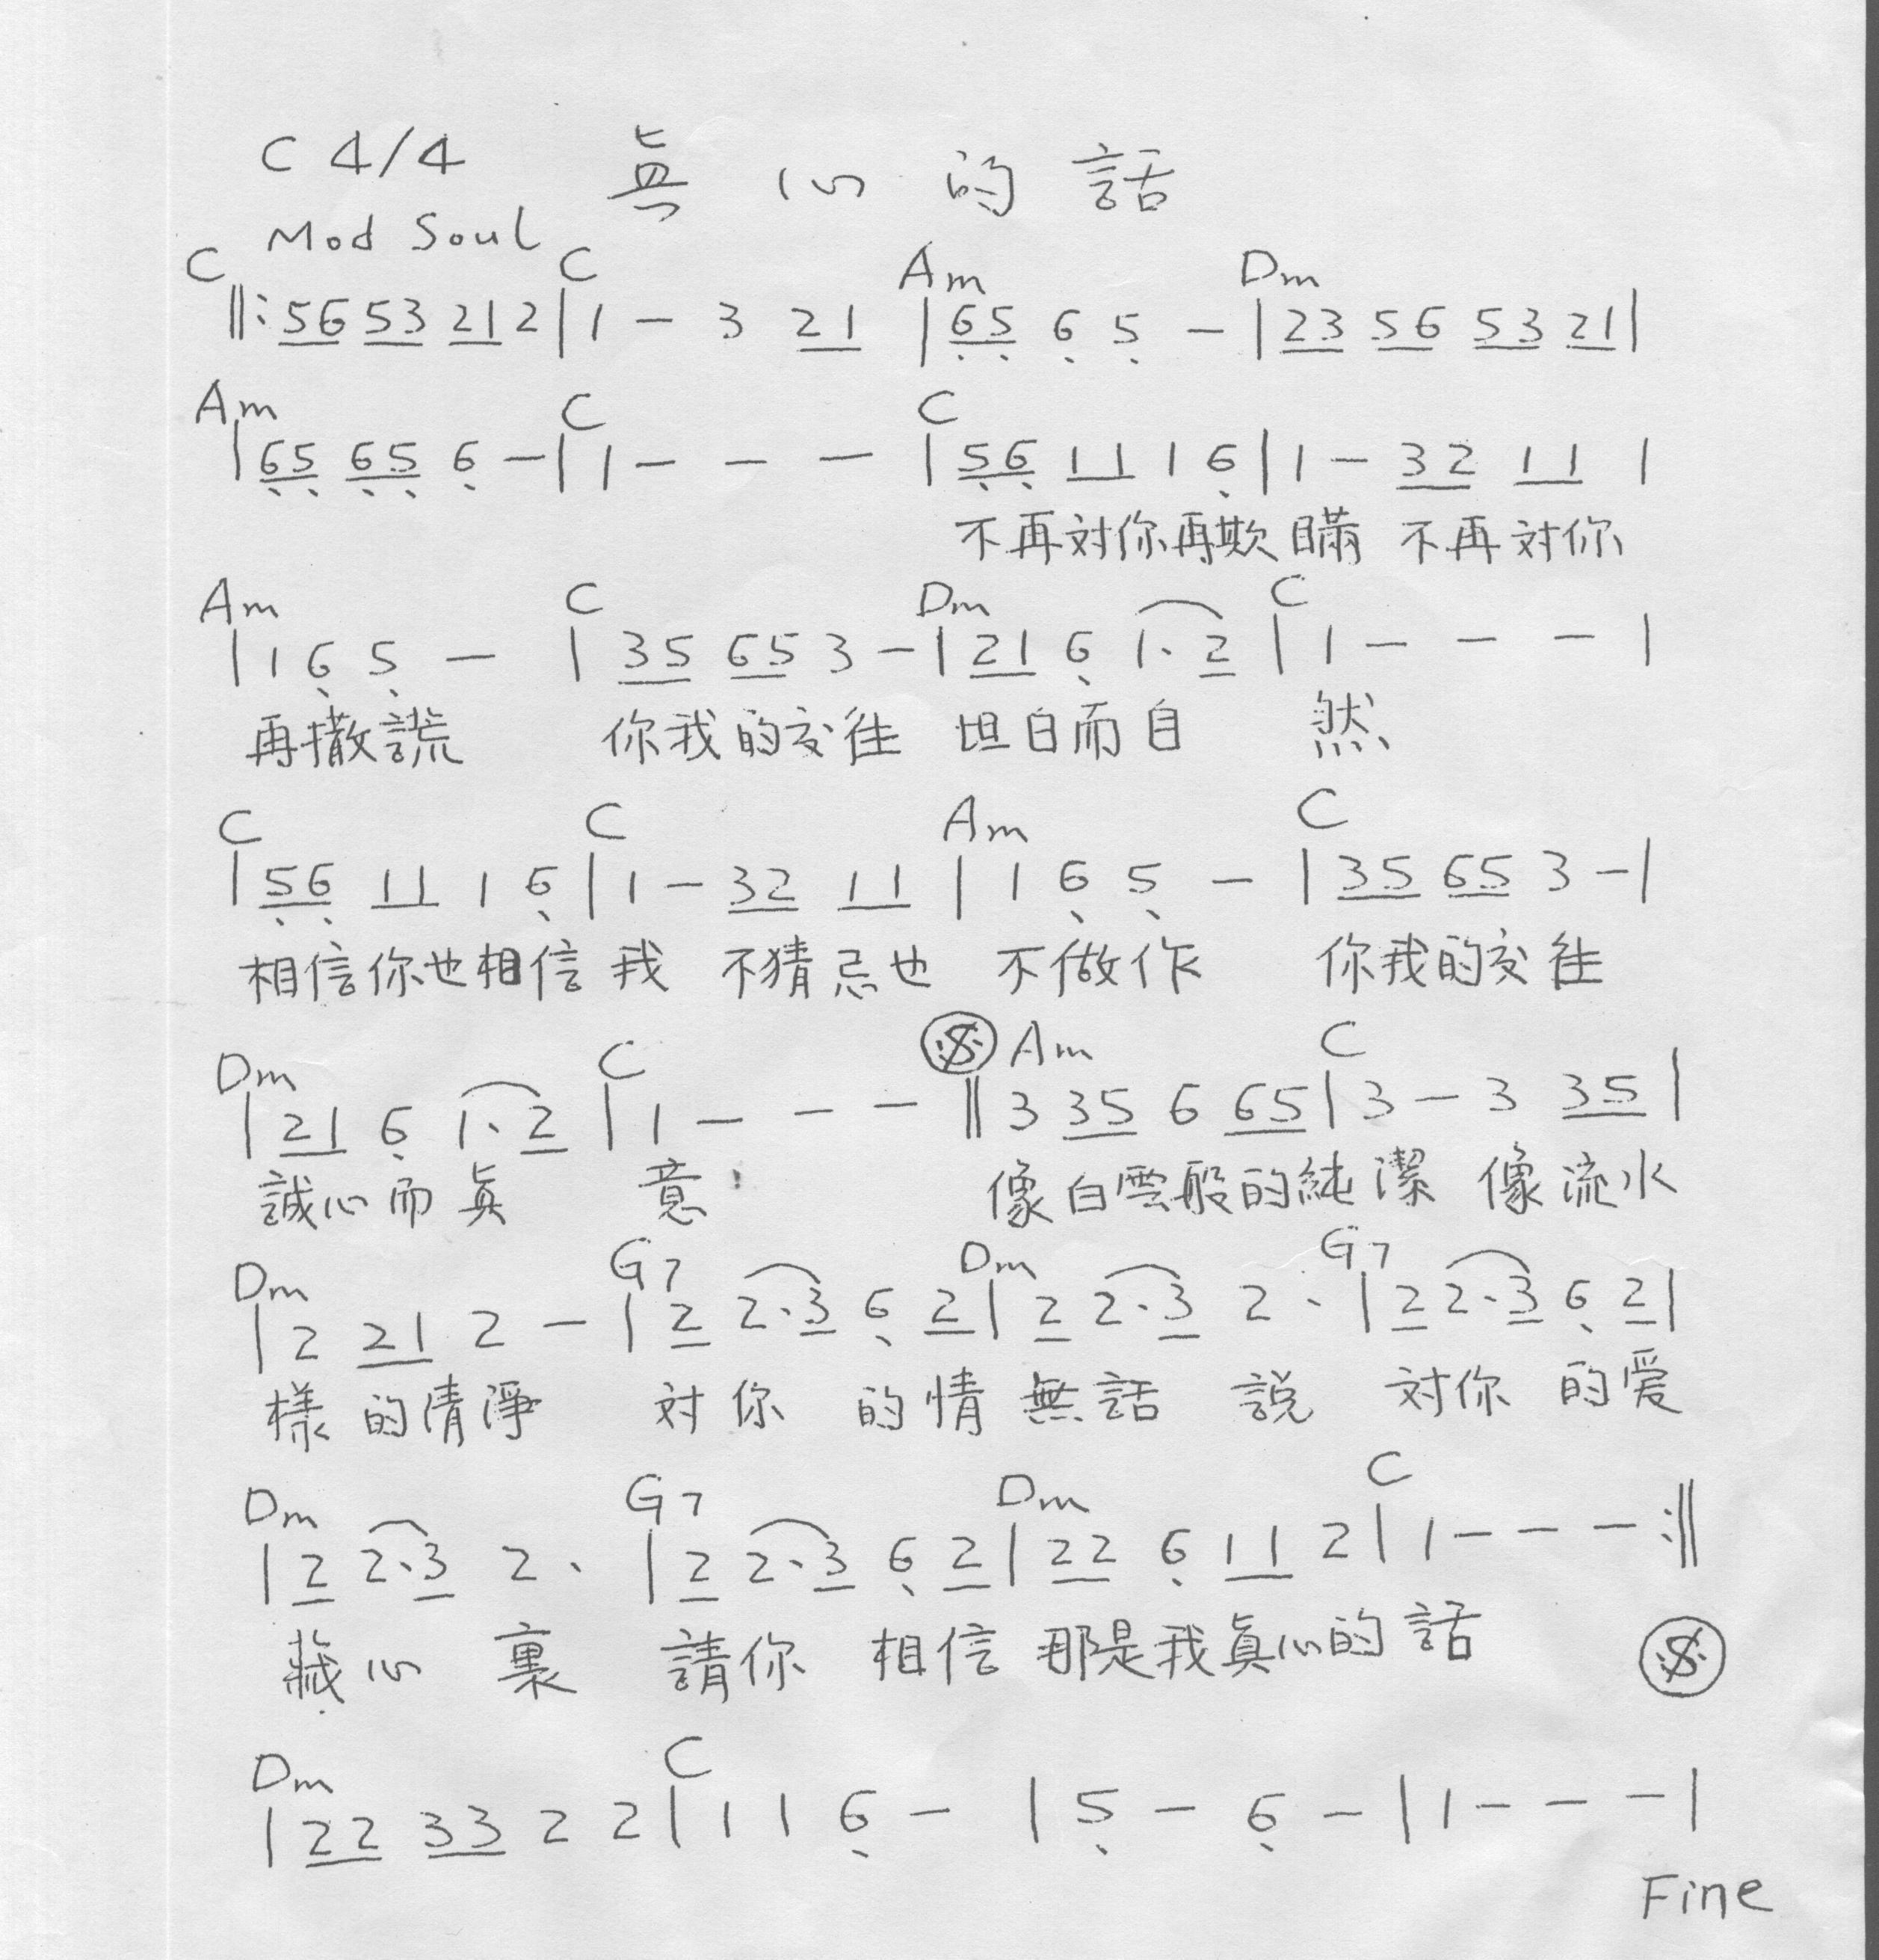 C 4/4 眞心的話
Mod Soul
C C Am Dm
‖: 56 53 21 2 | 1 — 3 21 | 65 6 5 — | 23 56 53 21 |
Am C C
| 65 65 6 — | 1 — — — | 56 11 1 6 | 1 — 32 11 |
不再对你再欺瞞 不再对你
Am C Dm C
| 1 6 5 — | 35 65 3 — | 21 6 1. 2 | 1 — — — |
再撒謊 你我的交往 坦白而自 然
C C Am C
| 56 11 1 6 | 1 — 32 11 | 1 6 5 — | 35 65 3 — |
相信你也相信我 不猜忌也 不做作 你我的交往
Dm C 𝄋 Am C
| 21 6 1. 2 | 1 — — — ‖ 3 35 6 65 | 3 — 3 35 |
誠心而眞 意 像白雲般的純潔 像流水
Dm G7 Dm G7
| 2 21 2 — | 2 2.3 6 2 | 2 2.3 2 . | 2 2.3 6 2 |
樣的清淨 对你 的情 無話 説 对你 的爱
Dm G7 Dm C
| 2 2.3 2 . | 2 2.3 6 2 | 22 6 11 2 | 1 — — — :‖
藏心 裏 請你 相信 那是我眞心的話 𝄋
Dm C
| 22 33 2 2 | 1 1 6 — | 5 — 6 — | 1 — — — |
Fine